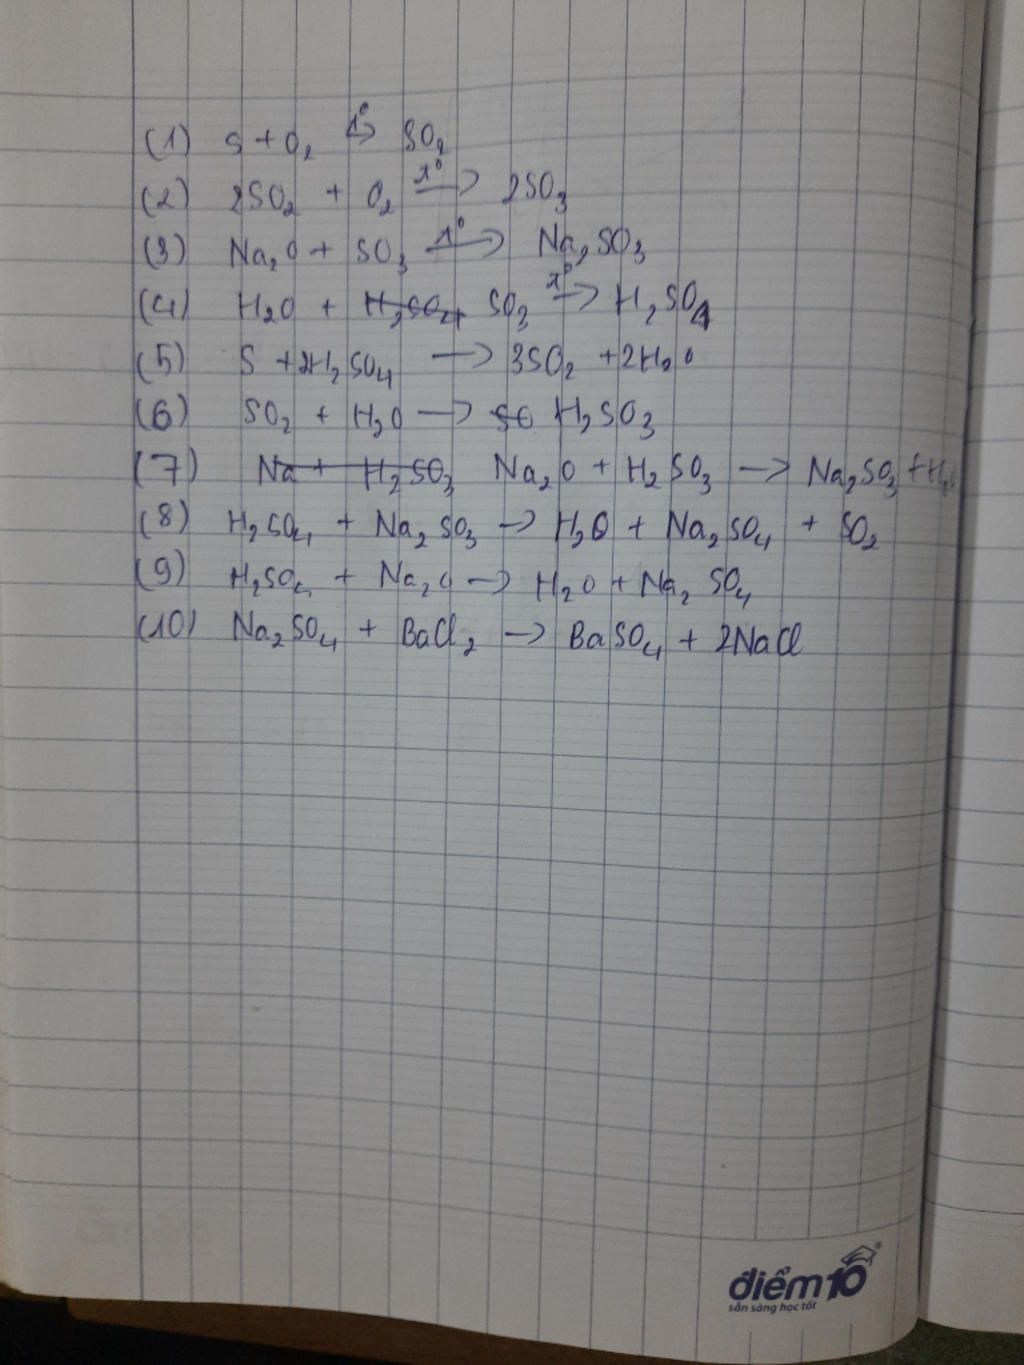 (1) S + O₂ t°→ SO₂
(2) 2SO₂ + O₂ t°→ 2SO₃
(3) Na₂O + SO₃ t°→ Na₂SO₃
(4) H₂O + H₂SO₄ SO₃ t°→ H₂SO₄
(5) S + 2H₂SO₄ → 3SO₂ + 2H₂O
(6) SO₂ + H₂O → SO H₂SO₃
(7) Na + H₂SO₃ Na₂O + H₂SO₃ → Na₂SO₃ +
(8) H₂SO₄ + Na₂SO₃ → H₂O + Na₂SO₄ + SO₂
(9) H₂SO₄ + Na₂O → H₂O + Na₂SO₄
(10) Na₂SO₄ + BaCl₂ → BaSO₄ + 2NaCl
điểm10®
sẵn sàng học tốt